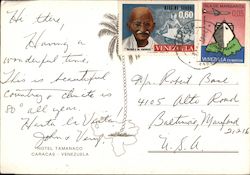 Hi there,
Having a
wonderful time.
This is beautiful
country & climate is
80° all year.
Hasta la Vista
John &
HOTEL TAMANACO
CARACAS VENEZUELA
0,60
VENEZUELA
ISLA DE MARGARITA
VENEZUELA
Mr. Robert Bane
4105 Alto Road
Baltimore, Maryland
21216
U.S.A.